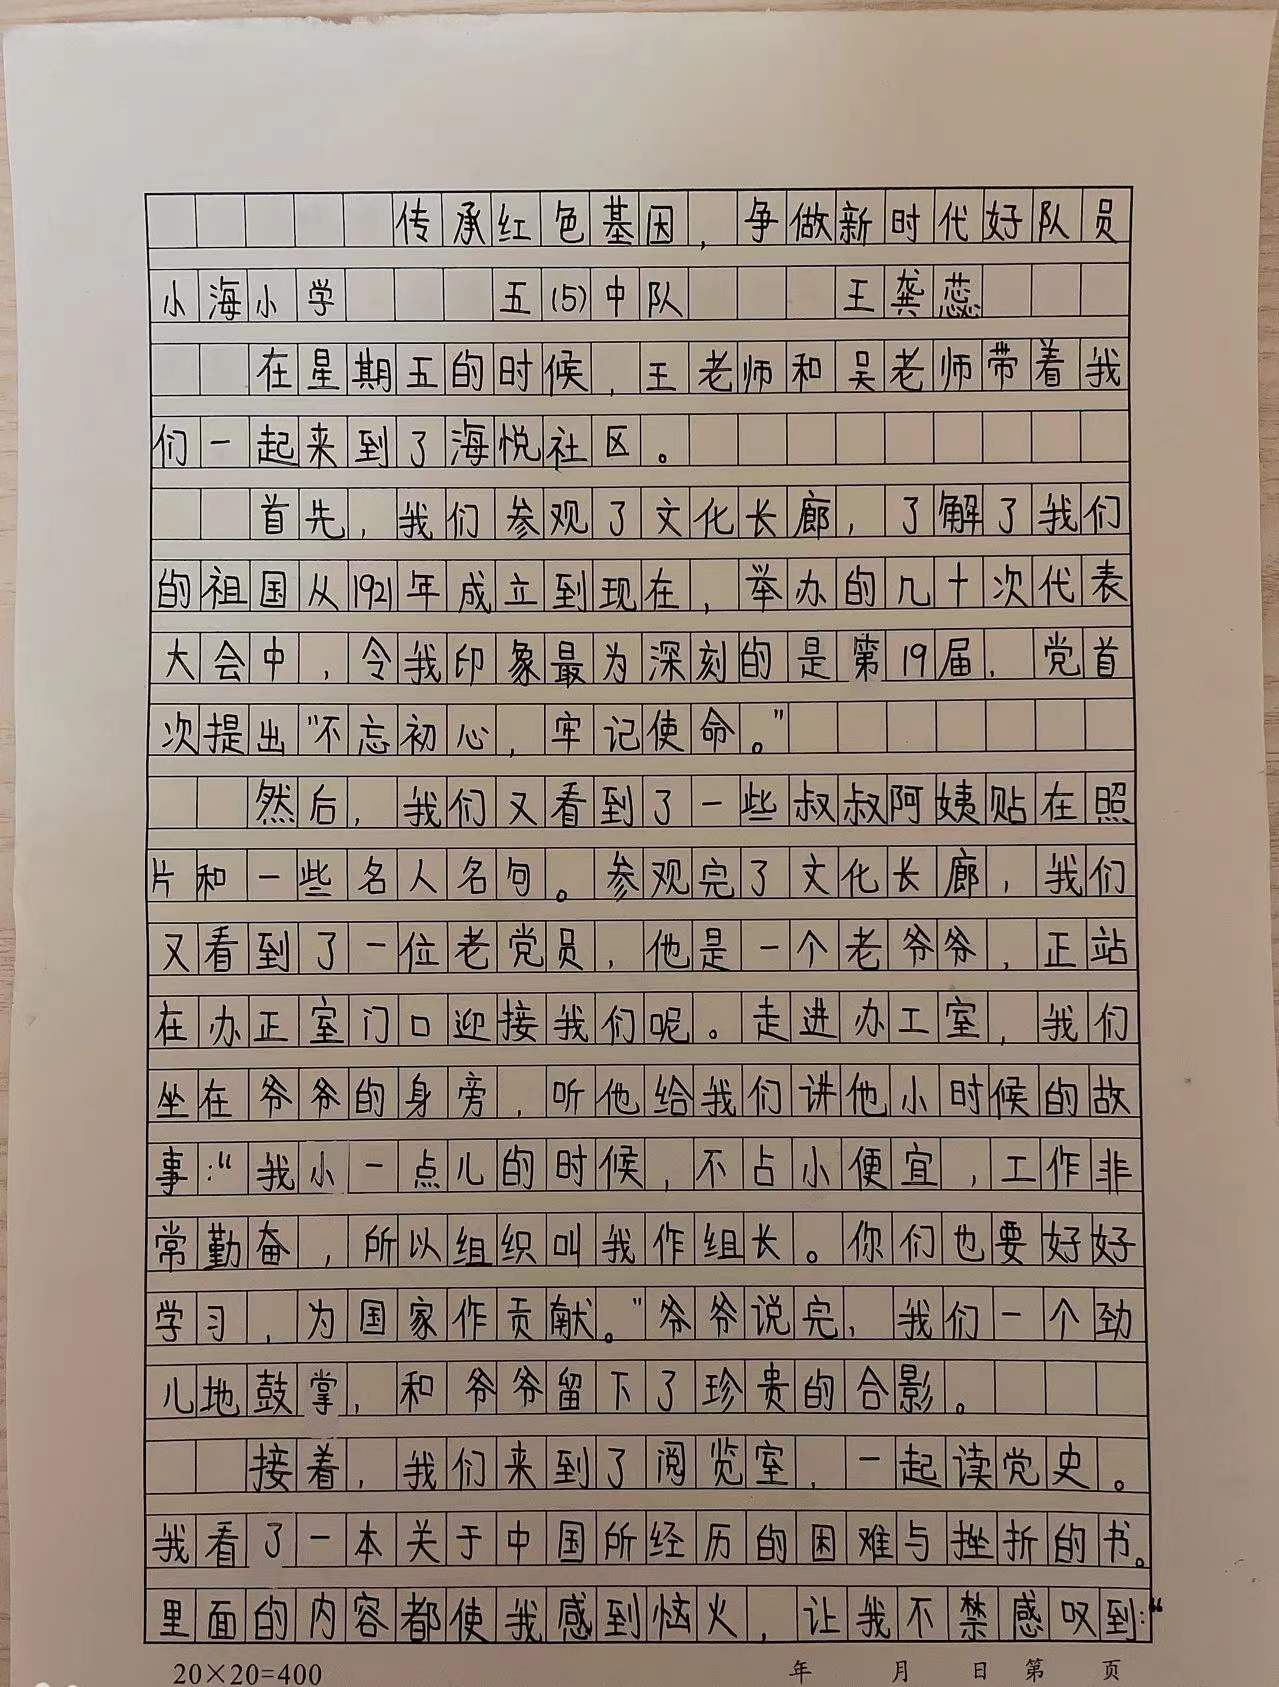 传承红色基因，争做新时代好队员
小海小学 五(5)中队 王龚蕊
在星期五的时候，王老师和吴老师带着我
们一起来到了海悦社区。
首先，我们参观了文化长廊，了解了我们
的祖国从1921年成立到现在，举办的几十次代表
大会中，令我印象最为深刻的是第19届，党首
次提出“不忘初心，牢记使命。”
然后，我们又看到了一些叔叔阿姨贴在照
片和一些名人名句。参观完了文化长廊，我们
又看到了一位老党员，他是一个老爷爷，正站
在办正室门口迎接我们呢。走进办工室，我们
坐在爷爷的身旁，听他给我们讲他小时候的故
事：“我小一点儿的时候，不占小便宜，工作非
常勤奋，所以组织叫我作组长。你们也要好好
学习，为国家作贡献。”爷爷说完，我们一个劲
儿地鼓掌，和爷爷留下了珍贵的合影。
接着，我们来到了阅览室，一起读党史。
我看了一本关于中国所经历的困难与挫折的书。
里面的内容都使我感到恼火，让我不禁感叹到：“
20×20=400 年 月 日 第 页